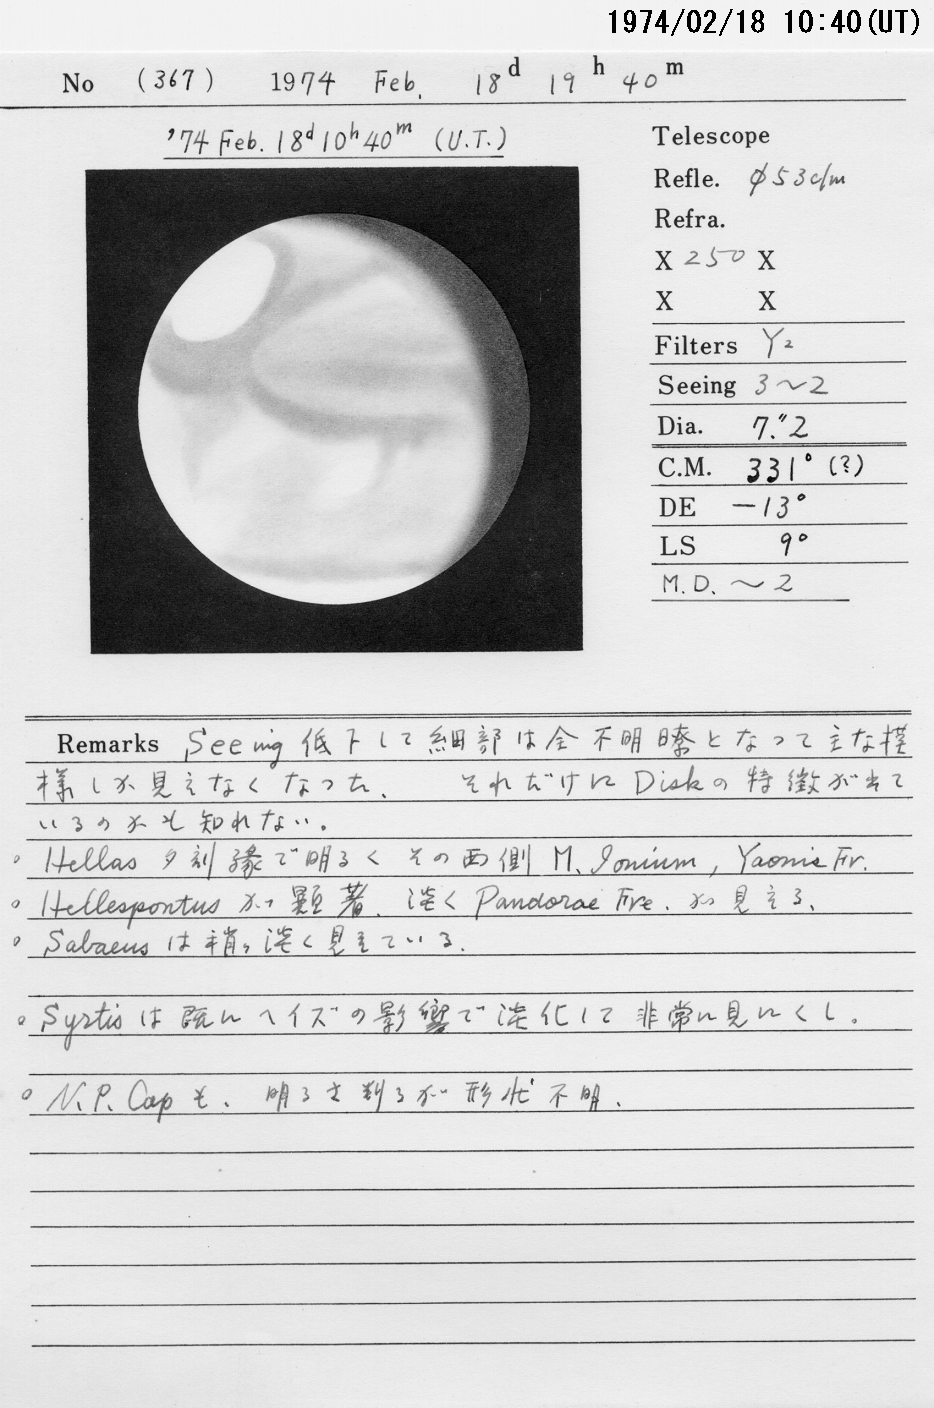 1974/02/18 10:40(UT)
No (367) 1974 Feb. 18d 19h 40m
'74 Feb. 18d 10h 40m (U.T.)
Telescope
Refle. φ53c/m
Refra.
X 250 X
X X
Filters Y2
Seeing 3~2
Dia. 7."2
C.M. 331° (?)
DE -13°
LS 9°
M.D. ~2
Remarks Seeing 低下して細部は全不明瞭となって主な模
様しか見えなくなった、 それだけに Diskの特徴が出て
いるのかも知れない。
○ Hellas 夕刻縁で明るく その西側 M. Ionium, Yaonis Fr.
○ Hellespontus が顕著、淡く Pandorae Fre. が見える、
○ Sabaeus は稍々淡く見えている.
○ Syrtis は既にヘイズの影響で淡化して 非常に見にくし。
○ N.P. Cap も、明るさ判るが形状不明.